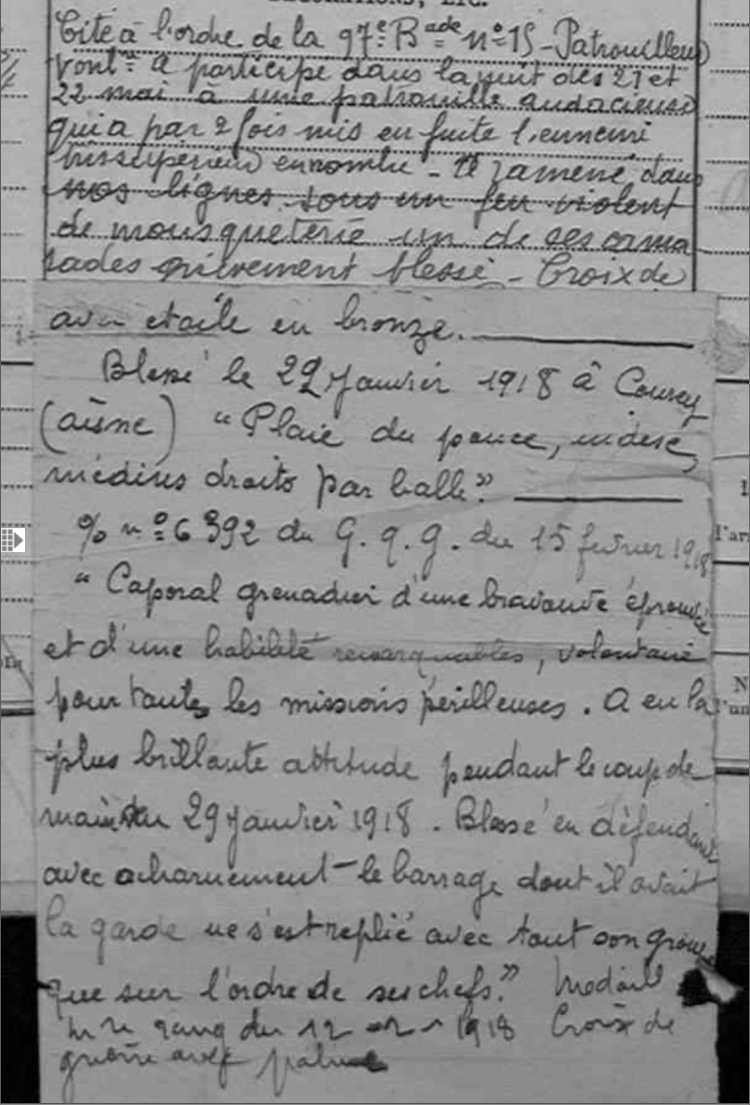 DECORATIONS, ETC.
Cité à l'ordre de la 97e Bade n° 15 - Patrouilleur
vontre a participé dans la nuit des 21 et
22 mai à une patrouille audacieuse
qui a par 2 fois mis en fuite l'ennemi
très supérieur en nombre - a ramené dans
nos lignes sous un feu violent
de mousqueterie un de ses cama
rades grièvement blessé - Croix de
avec étoile en bronze.
Blessé le 29 Janvier 1918 à Courcy
(aisne) "Plaie du pouce, index,
médius droits par balle"
% n° 6392 du G.q.g. du 15 février 1918
"Caporal grenadier d'une bravoure éprouvée
et d'une habileté remarquables, volontaire
pour toutes les missions périlleuses. A eu la
plus brillante attitude pendant le coup de
main du 29 Janvier 1918. Blessé en défendant
avec acharnement le barrage dont il avait
la garde ne s'est replié avec tout son groupe
que sur l'ordre de ses chefs." Médaill
rang du 12-2-1918 Croix de
guerre avec palme